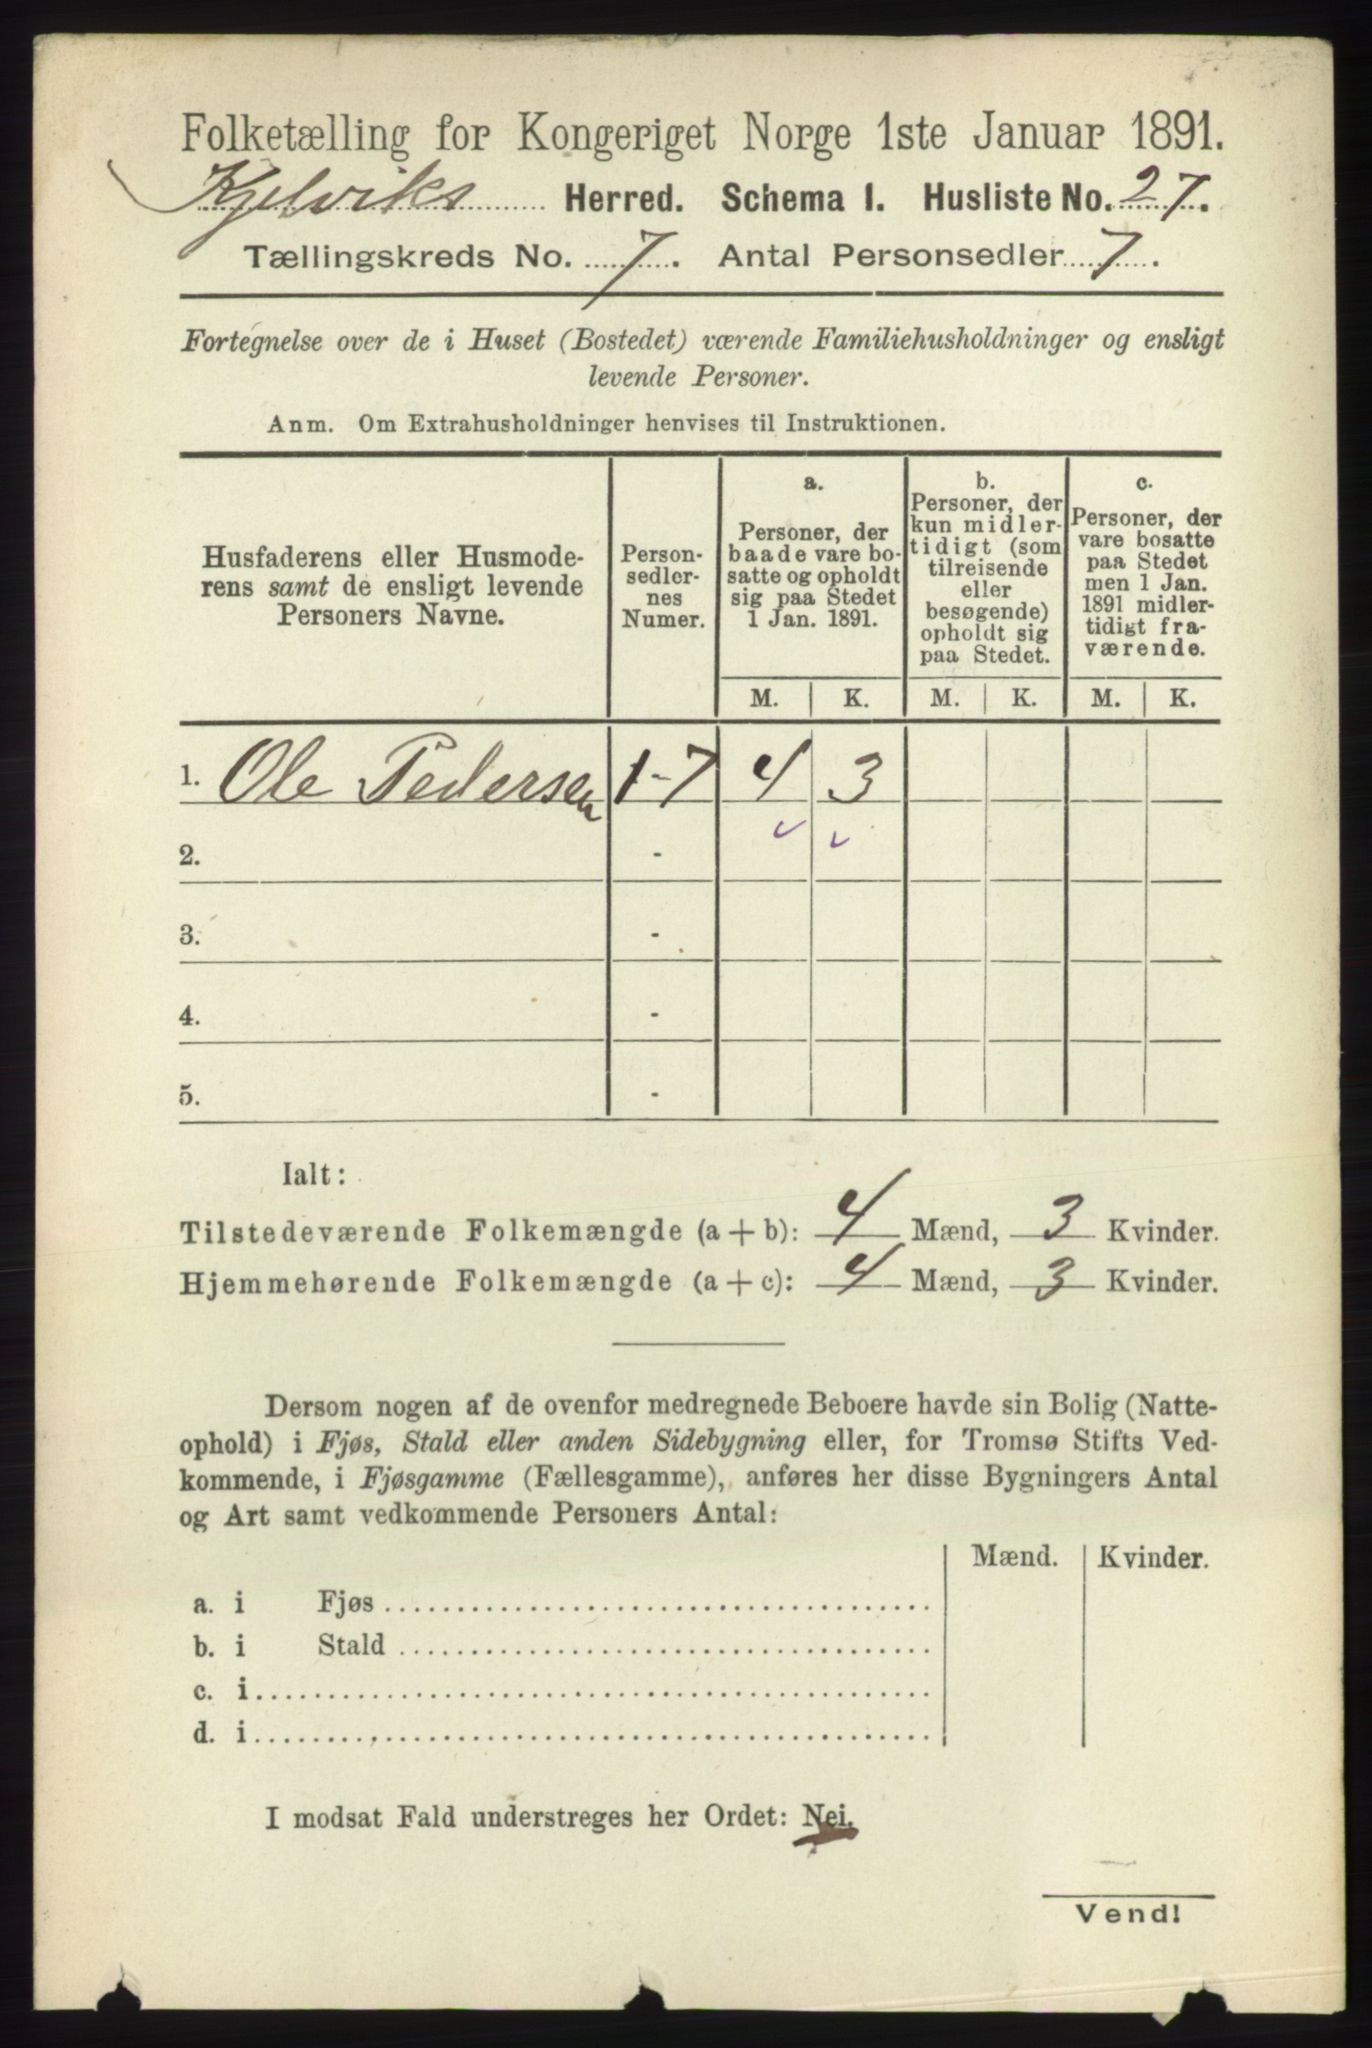 Folketælling for Kongeriget Norge 1ste Januar 1891.
Kjelviks Herred. Schema I. Husliste No. 27.
Tællingskreds No. 7. Antal Personsedler 7.
Fortegnelse over de i Huset (Bostedet) værende Familiehusholdninger og ensligt
levende Personer.
Anm. Om Extrahusholdninger henvises til Instruktionen.
Husfaderens eller Husmode-
rens samt de ensligt levende
Personers Navne.
Person-
sedler-
nes
Numer.
a.
Personer, der
baade vare bo-
satte og opholdt
sig paa Stedet
1 Jan. 1891.
b.
Personer, der
kun midler-
tidigt (som
tilreisende
eller
besøgende)
opholdt sig
paa Stedet.
c.
Personer, der
vare bosatte
paa Stedet
men 1 Jan.
1891 midler-
tidigt fra-
værende.
M. K. M. K. M. K.
1. Ole Pedersen 1-7 4 3
2. -
3. -
4. -
5. -
Ialt:
Tilstedeværende Folkemængde (a + b): 4 Mænd, 3 Kvinder.
Hjemmehørende Folkemængde (a + c): 4 Mænd, 3 Kvinder.
Dersom nogen af de ovenfor medregnede Beboere havde sin Bolig (Natte-
ophold) i Fjøs, Stald eller anden Sidebygning eller, for Tromsø Stifts Ved-
kommende, i Fjøsgamme (Fællesgamme), anføres her disse Bygningers Antal
og Art samt vedkommende Personers Antal:
Mænd. Kvinder.
a. i Fjøs
b. i Stald
c. i
d. i
I modsat Fald understreges her Ordet: Nei.
Vend!